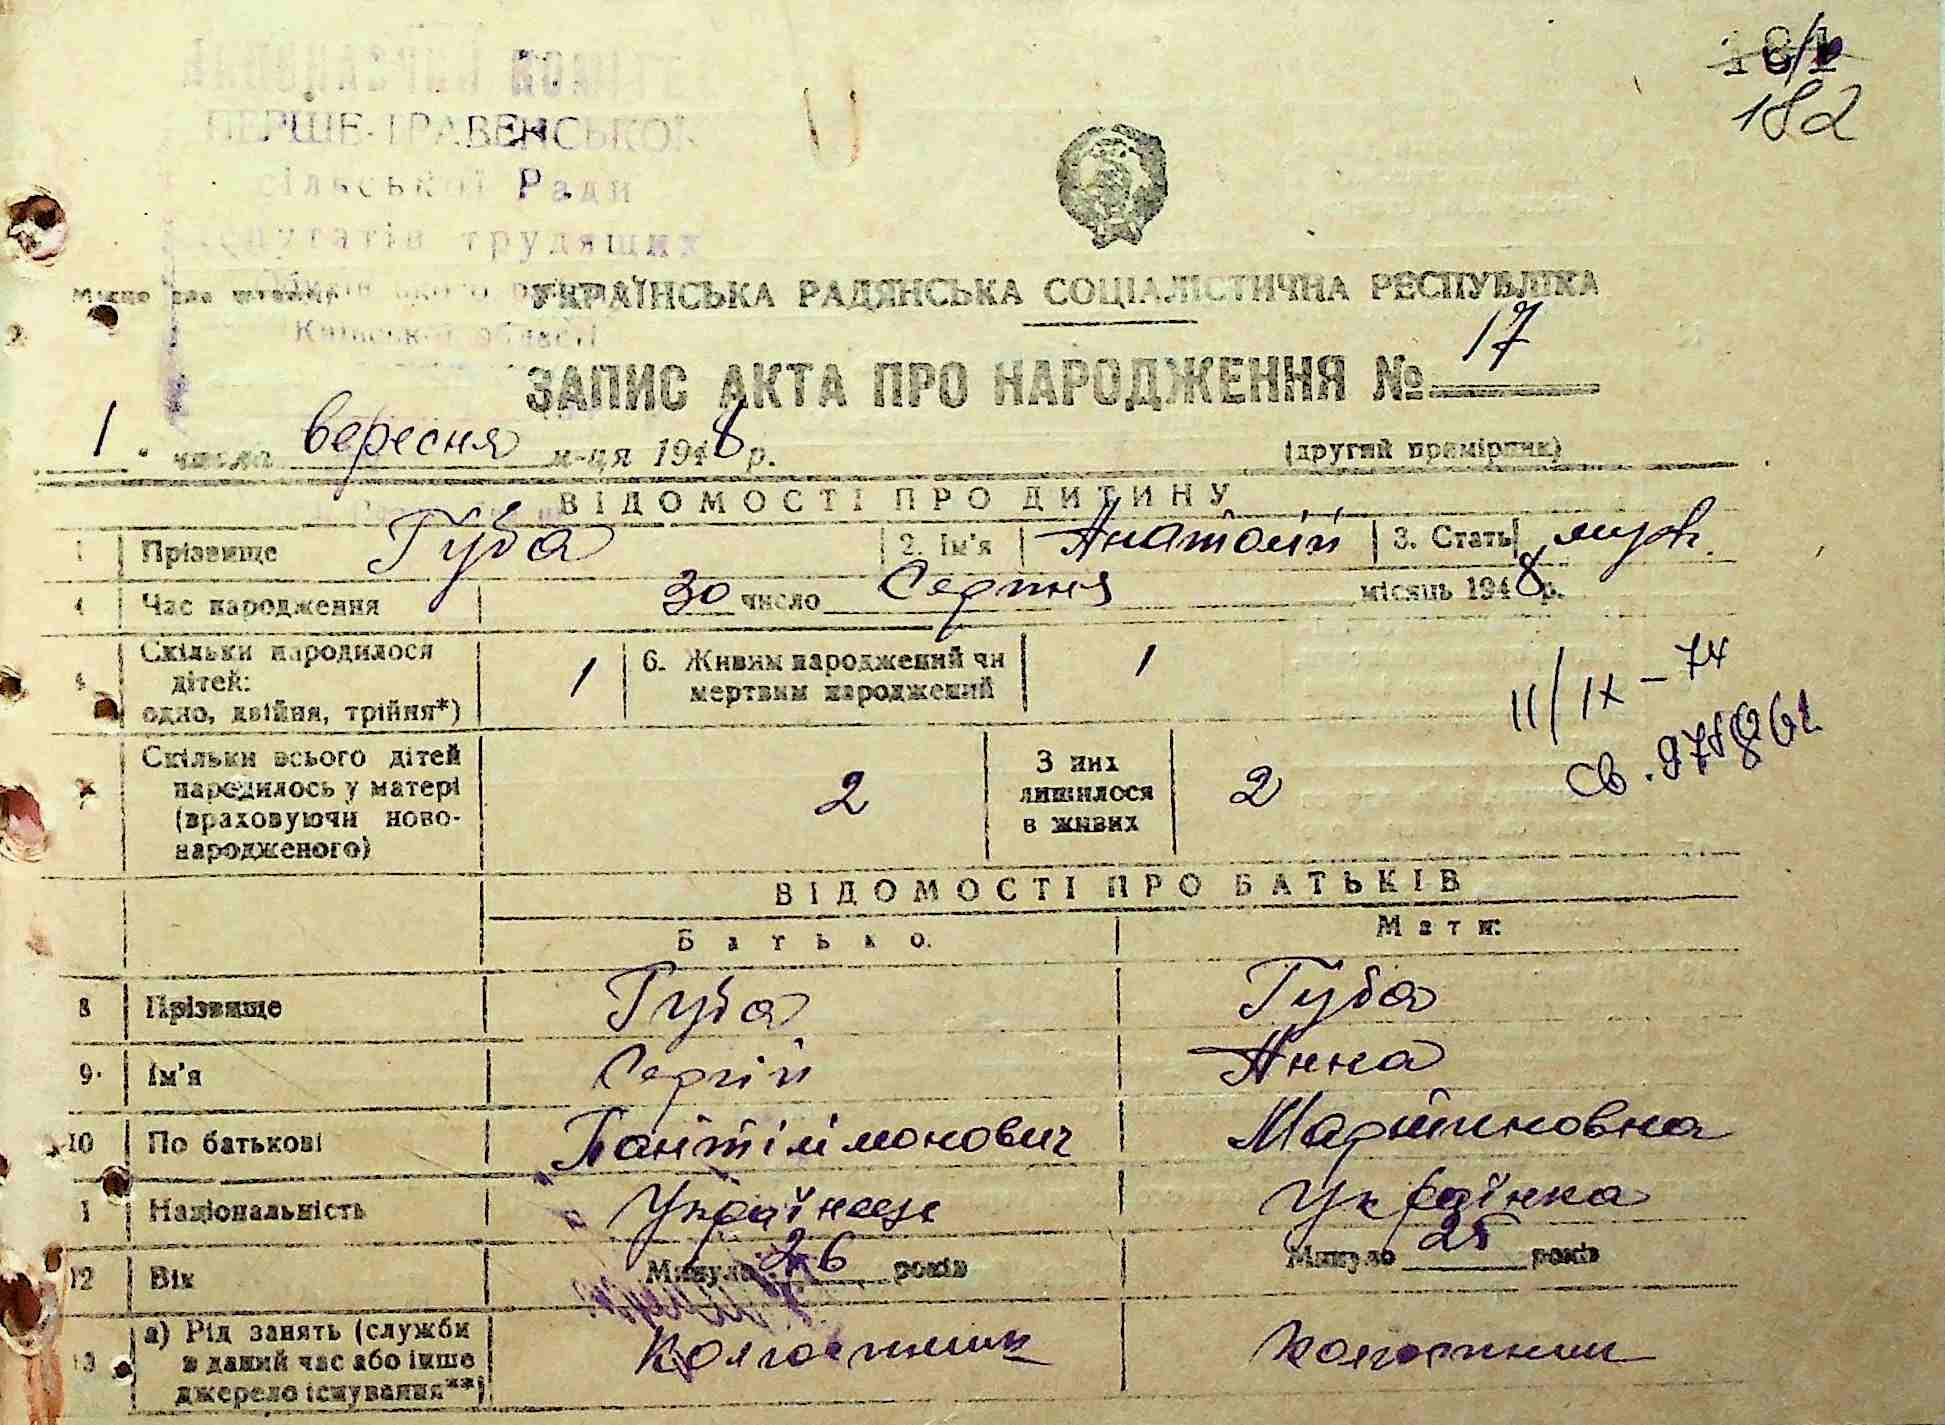 181
182
ПЕРШЕ-ТРАВЕНСЬКОЇ
сільської Ради
депутатів трудящих
Місце для штампу
Київської області
УКРАЇНСЬКА РАДЯНСЬКА СОЦІАЛІСТИЧНА РЕСПУБЛІКА
ЗАПИС АКТА ПРО НАРОДЖЕННЯ № 17
1 числа вересня м-ця 1948 р. (другий примірник)
ВІДОМОСТІ ПРО ДИТИНУ
1 Прізвище Губа 2. Ім'я Анатолій 3. Стать муж.
4 Час народження 30 число Серпня місяць 1948 р.
Скільки народилося дітей: одно, двійня, трійня*) 1 6. Живим народжений чи мертвим народжений 1
11/IX - 74
Св.
7 Скільки всього дітей народилось у матері (враховуючи ново-народженого) 2 З них лишилося в живих 2
ВІДОМОСТІ ПРО БАТЬКІВ
Батько: Мати:
8 Прізвище Губа Губа
9. Ім'я Сергій Анна
10 По батькові Пантілімонович Мартиновна
1 Національність Українець Українка
12 Вік Минуло 26 років Минуло 25 років
13 а) Рід занять (служби в даний час або інше джерело існування**) Колгоспник Колгоспниц